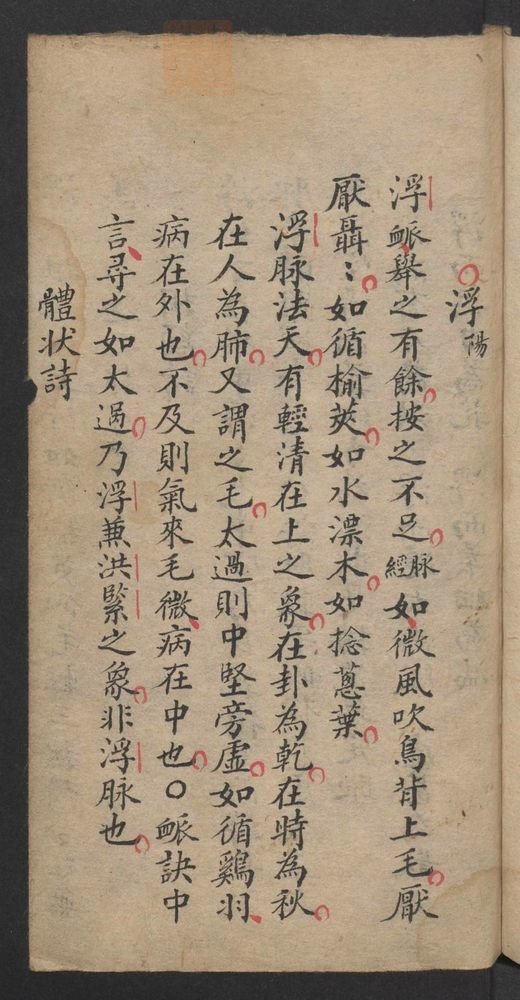 浮陽
浮脈舉之有餘按之不足脉經如微風吹鳥背上毛厭
厭聶:如循榆莢如水漂木如捻蔥葉
浮脉法天有輕清在上之象在卦為乾在時為秋
在人為肺又謂之毛太過則中堅旁虛如循鷄羽
病在外也不及則氣來毛微病在中也○脈訣中
言尋之如太過乃浮兼洪緊之象非浮脉也
體状詩